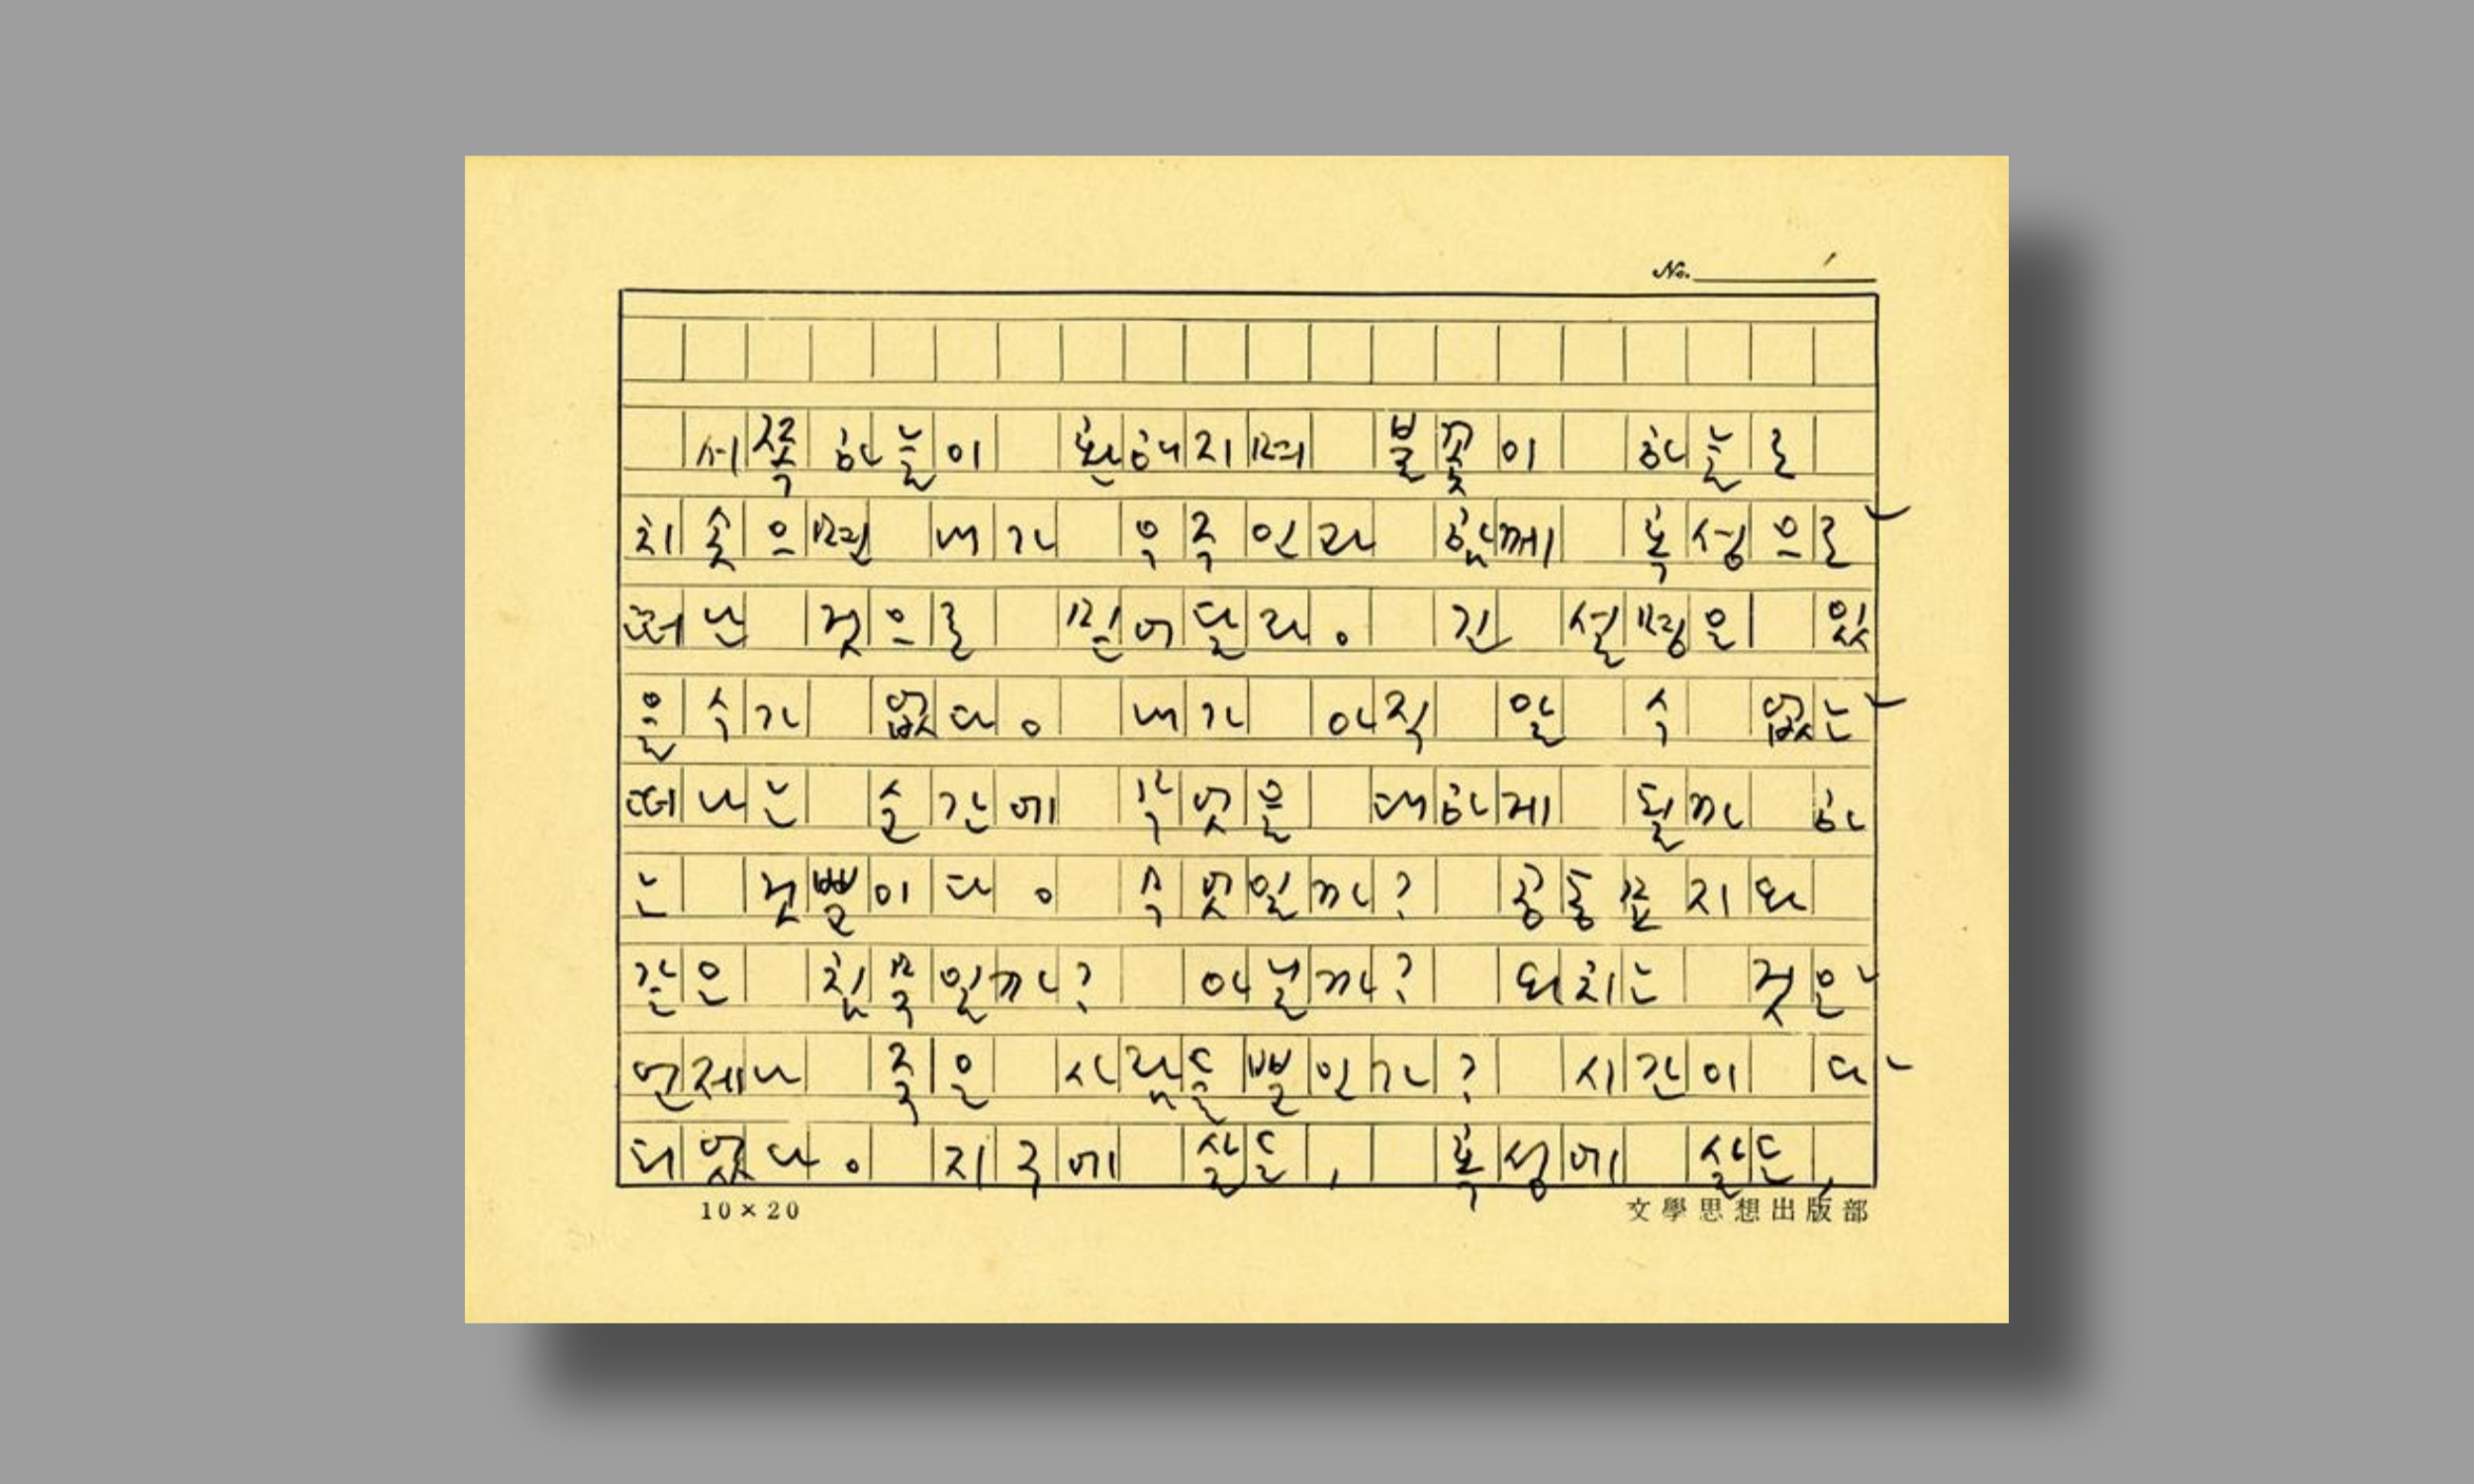 No. 1
서쪽 하늘이 환해지며 불꽃이 하늘로
치솟으면 내가 우주인과 함께 혹성으로
떠난 것으로 믿어달라。 긴 설명은 있
을 수가 없다。 내가 아직 알 수 없는
떠나는 순간에 무엇을 대하게 될까 하
는 것뿐이다。 무엇일까? 공동묘지와
같은 침묵일까? 아닐까? 외치는 것은
언제나 죽은 사람들뿐인가? 시간이 다
되었다。 지구에 살든, 혹성에 살든,
10×20 文學思想出版部